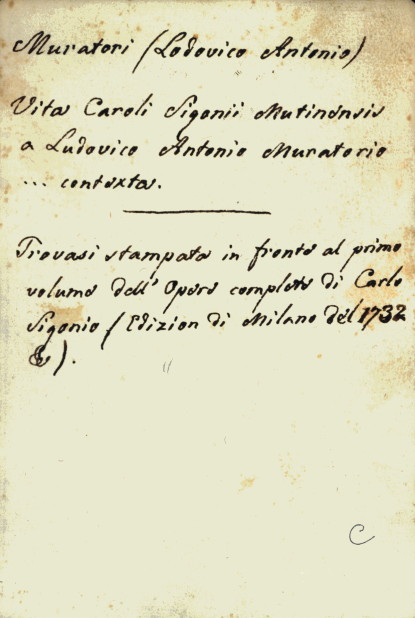 Muratori (Lodovico Antonio)
Vita Caroli Sigonii Mutinensis
a Ludovico Antonio Muratorio
... contexta.
Trovasi stampata in fronte al primo
volume dell' Opere complete di Carlo
Sigonio (Edizion di Milano del 1732
&).
C